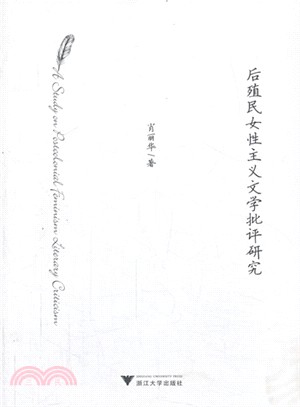 后殖民女性主义文学批评研究
A Study on Postcolonial Feminism Literary Criticism
肖丽华/著
ZHEJIANG UNIVERSITY PRESS
浙江大学出版社
三民